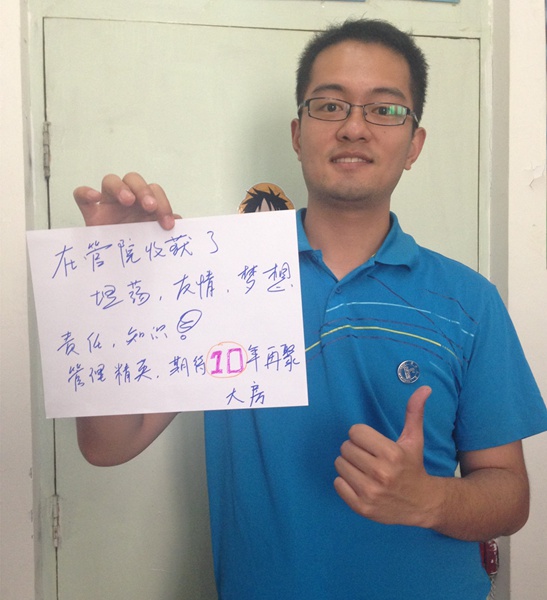 在管院收获了
坦荡，友情，梦想
责任，知识
管理精英，期待10年再聚
大房